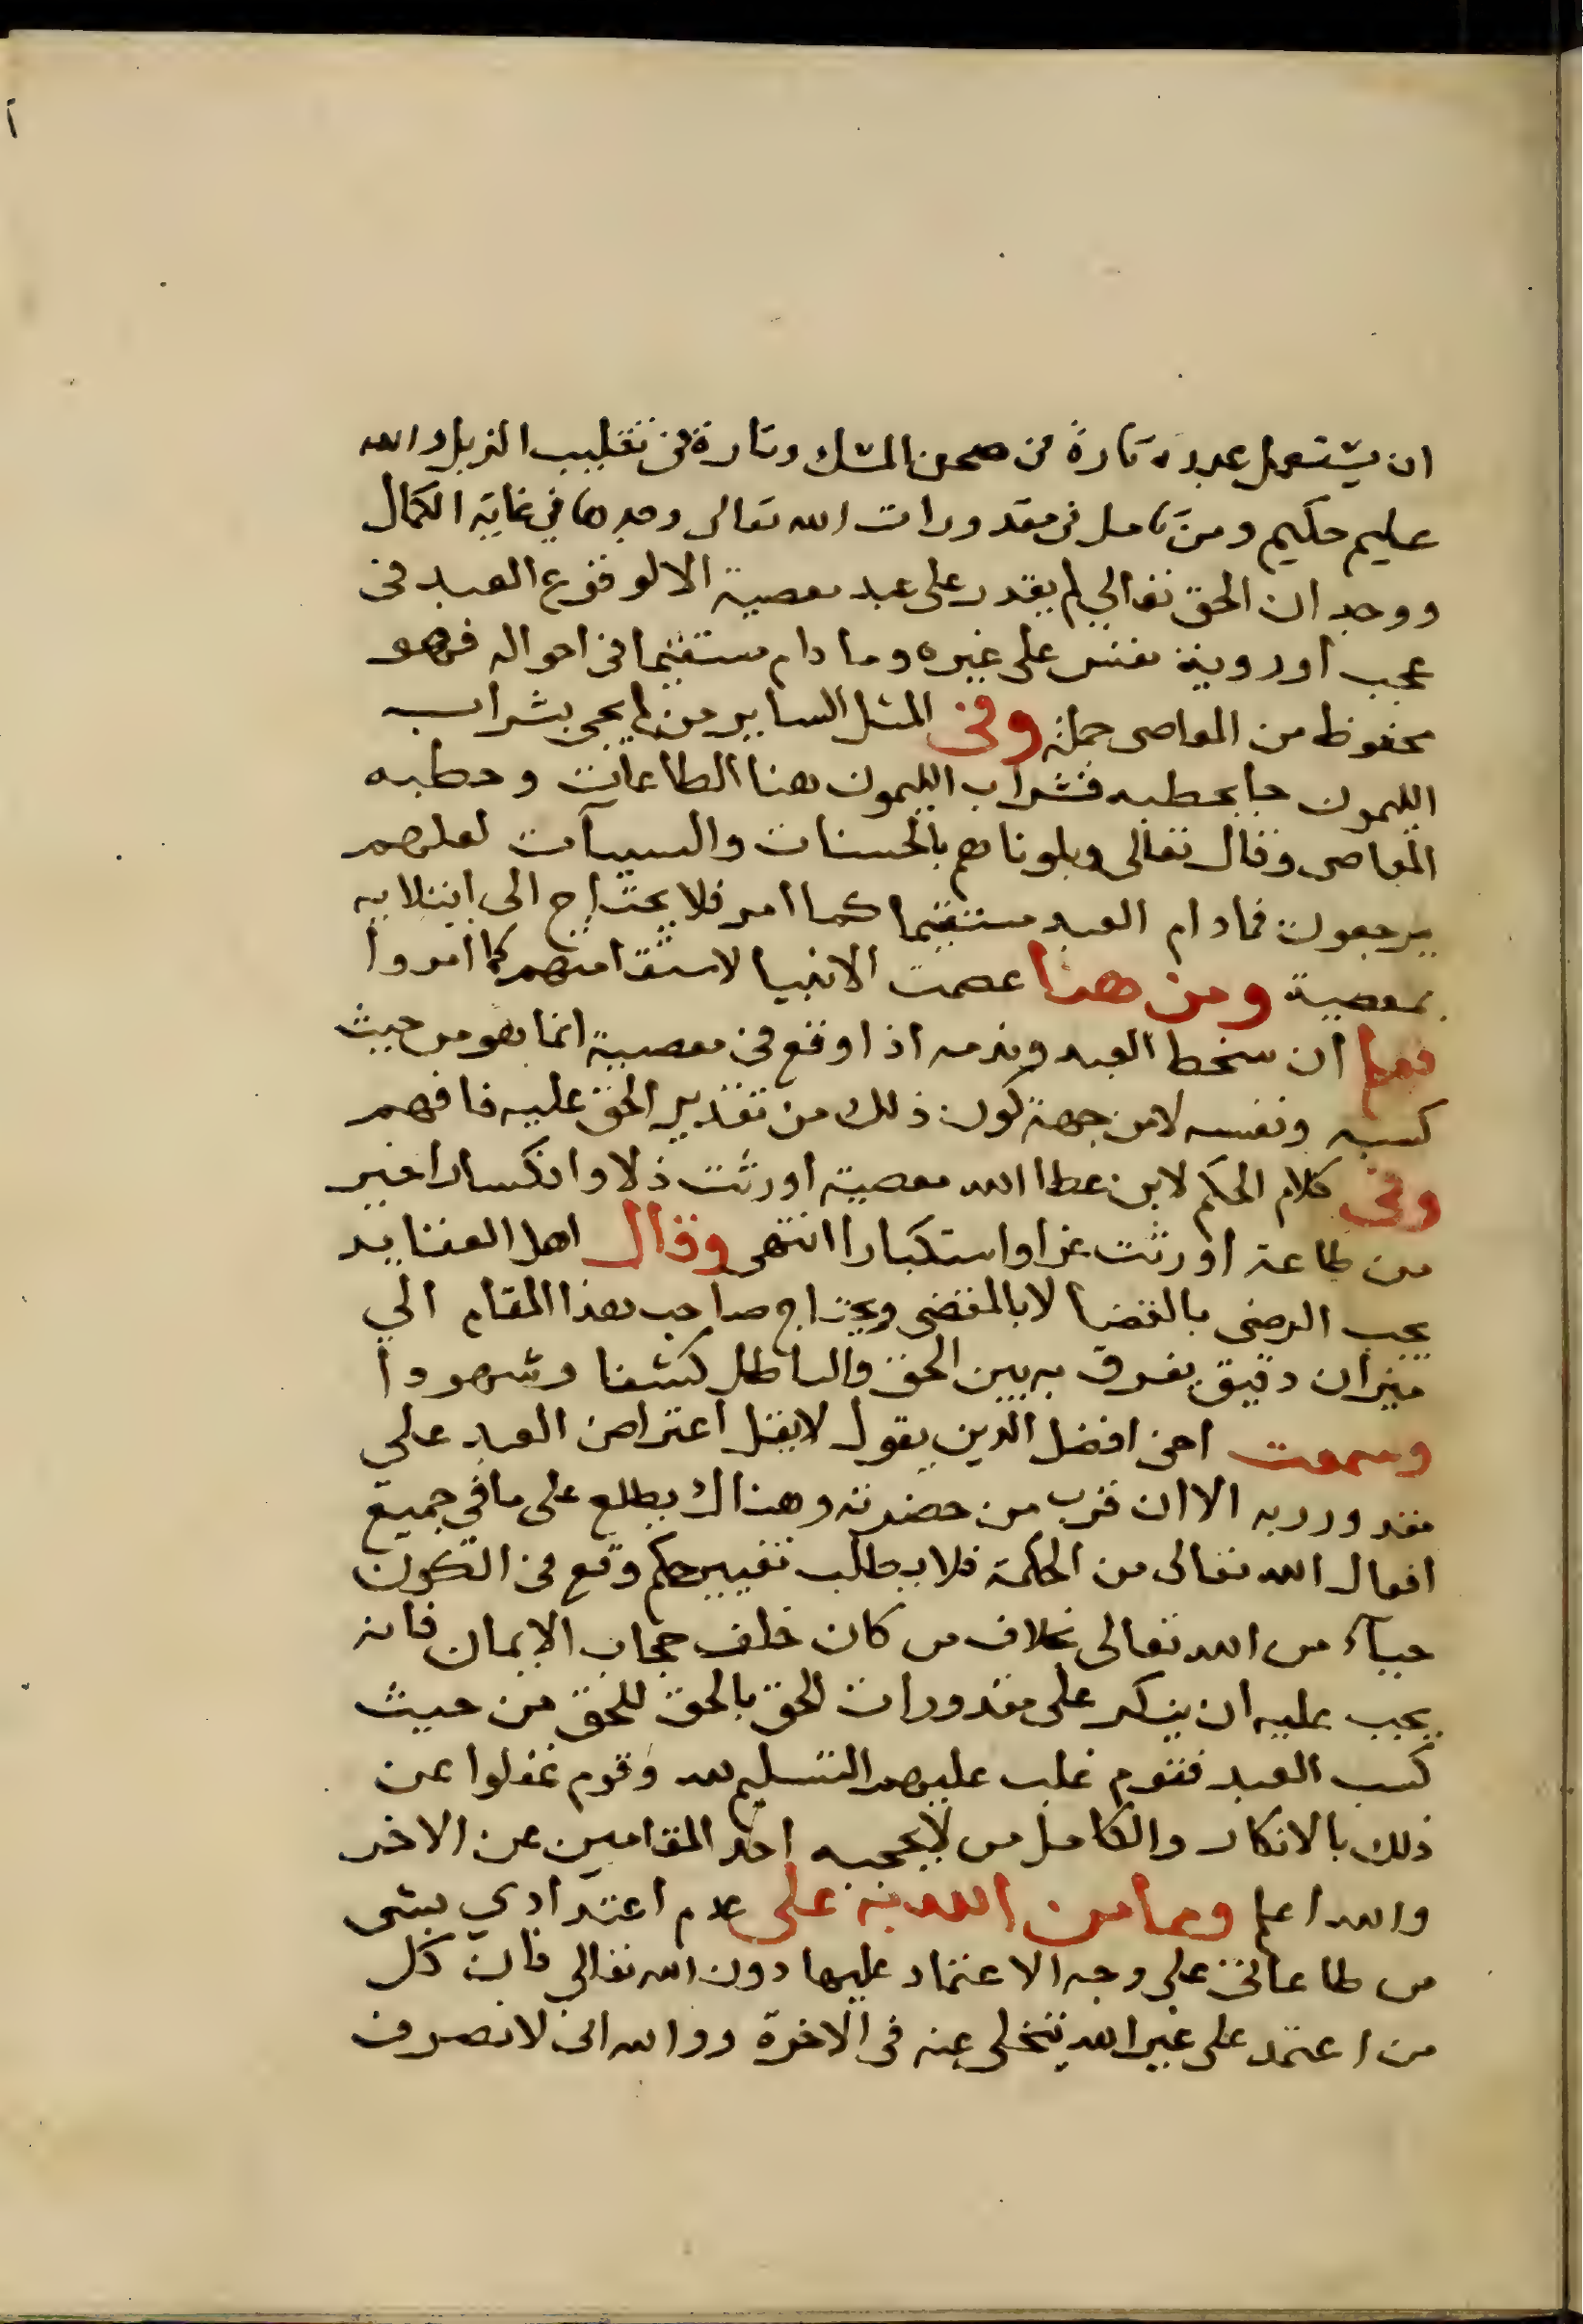 ان يستعمل عبده تارة في صحن المسك وتارة في تقليب الزبل والله
عليم حكيم ومن تامل في مقدورات الله تعالى وجدها في غاية الكمال
ووجد ان الحق تعالي لم يقدر على عبد معصية الا لوقوع العبد في
عجب اوروية نفس على غيره وما دام مستقيما في احواله فهو
محفوظ من المعاصي جملة وفي المثل الساير من لم يجي بشراب
الليمون جا بحطبه فشراب الليمون هنا الطاعات وحطبه
المعاصى وقال تعالى وبلوناهم بالحسنات والسيآت لعلهم
يرجعون فمادام العبد مستقيما كما امر فلا يحتاج الى ابتلايه
بمعصية ومن هنا عصمت الانبيا لاستقامتهم كما امروا
فعلم ان سخط العبد وندمه اذا وقع في معصية انما هو من حيث
كسبه ونفسه لا من جهة كون ذلك من تقدير الحق عليه فافهم
وفي كلام الحكم لابن عطا الله معصية اورثت ذلا وانكسارا خير
من طاعة اورثت عزا واستكبارا انتهى وقال اهل العقايد
يجب الرضى بالقضا لا بالمقضى ويحتاج صاحب هذا المقام الي
ميزان دقيق يفرق به بين الحق والباطل كشفا وشهودا
وسمعت اخي افضل الدين يقول لا يقل اعتراض العبد علي
مقدور ربه الا ان قرب من حضرته وهناك يطلع على ما في جميع
افعال الله تعالى من الحكمة فلا يطلب تغيير حكم وقع في الكون
حيآء من الله تعالى بخلاف من كان خلف حجاب الايمان فانه
يجب عليه ان ينكر على مقدورات الحق بالحق للحق من حيث
كسب العبد فقوم غلب عليهم التسليم لله وقوم غفلوا عن
ذلك بالانكار والكامل من لا يحجبه احد المقامين عن الاخر
والله اعلم ومما من الله به على عدم اعتدادي بشي
من طاعاتي على وجه الاعتماد عليها دون الله تعالي فان كل
من اعتمد على غير الله يتخلى عنه في الاخرة ووالله اني لانصرف